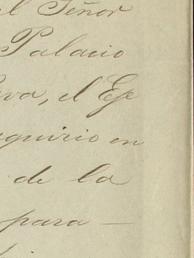 el Señor
Palacio
va, el Ep
quirio en
de la
para —